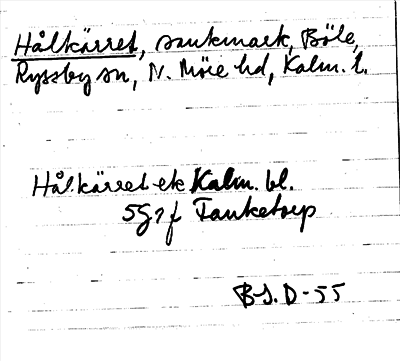 Hålkärret, sankmark, Böle,
Ryssby sn, N. Möre hd, Kalm. l.
Hålkärret ek Kalm. bl.
5G7f
B-S.D-55